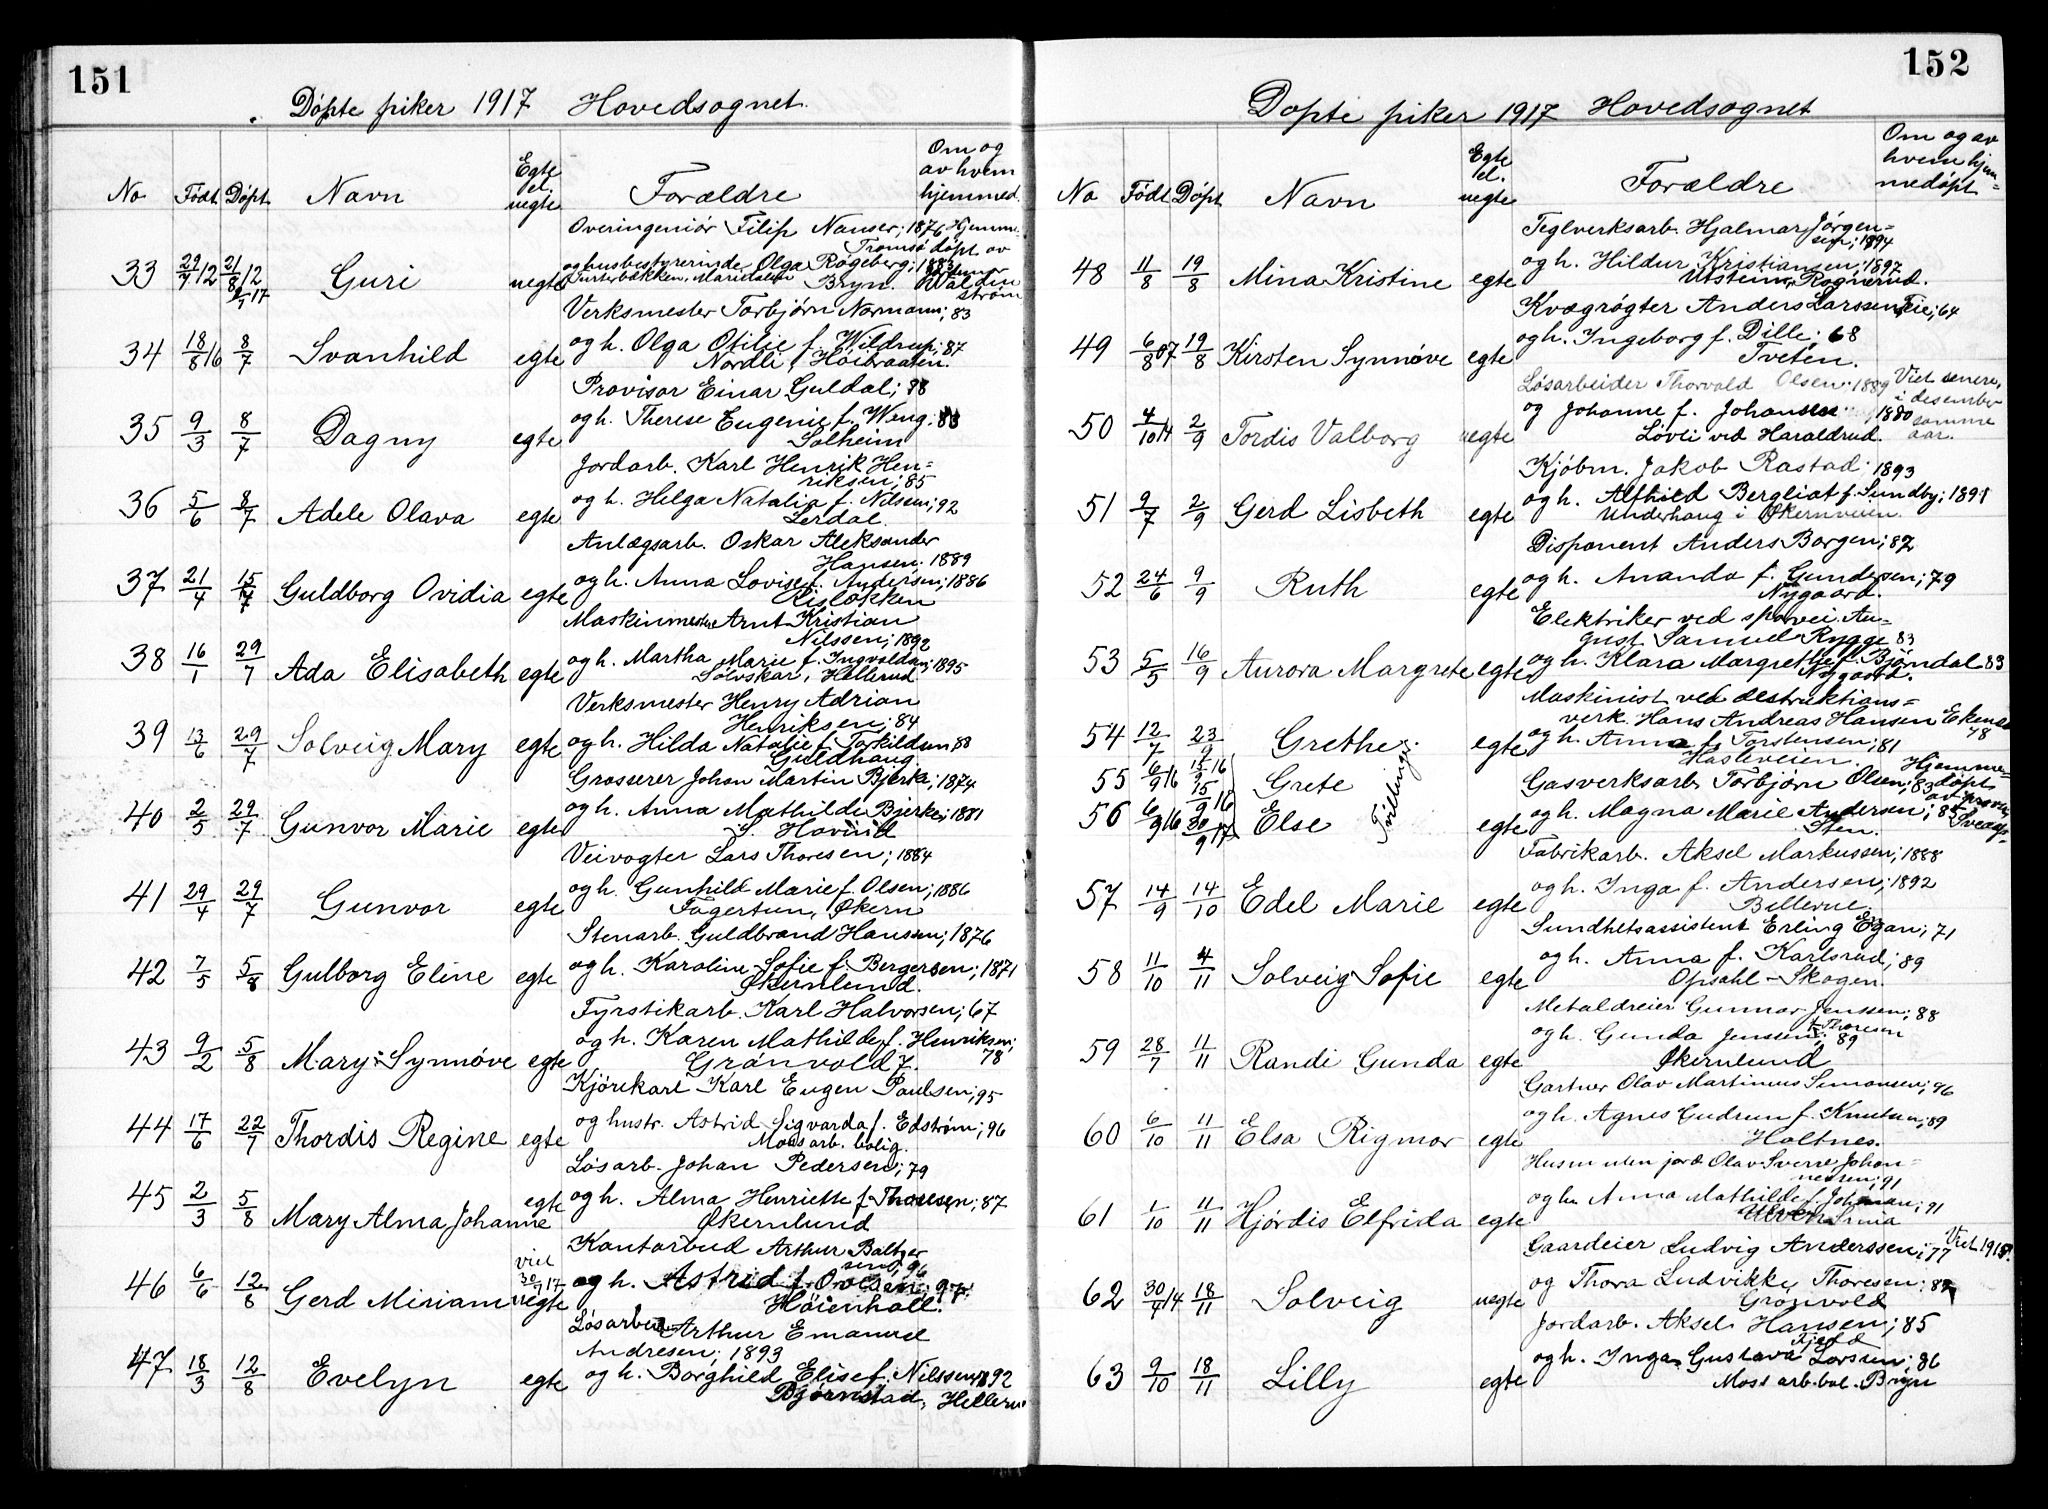 151
Døpte piker 1917 Hovedsognet.
No Født Døpt Navn Egte el. uegte Forældre Om og av hvem hjemmed.
Overingeniør Filip Nanser; 1876 Hjemme-
Tromsø døpt av
og husbestyrerinde Olga Rogeberg; 1883
33 29/7 12 21/8 12 Guri uegte Maridalen Bryn.
9/1 17 strøm
Verksmester Torbjørn Normann; 83
34 18/8 16 8/7 Svanhild egte og h. Olga Otilie f. Wildrup; 87
Nordli, Høibraaten.
Provisor Einar Guldal; 88
35 9/3 8/7 Dagny egte og h. Therese Eugenie f. Weng; 88
Solheim
Jordarb. Karl Henrik Hen-
riksen; 85
36 5/6 8/7 Adele Olava egte og h. Helga Natalia f. Nilsen; 92
Lerdal.
Anlægsarb. Oskar Aleksander
Hansen; 1889
37 21/4 15/7 Guldborg Ovidia egte og h. Anna Lovise f. Andersen; 1886
Risløkken
Maskinmester Arnt Kristian
Nilssen; 1892
38 16/1 29/7 Ada Elisabeth egte og h. Martha Marie f. Ingvaldsen; 1895
Sølvskar, Hellerud.
Verksmester Henry Adrian
Henriksen; 84
39 13/6 29/7 Solveig Mary egte og h. Hilda Natalie f. Torkildsen; 88
Guldhaug.
Grosserer Johan Martin Bjerke; 1874
40 2/5 29/7 Gunvor Marie egte og h. Anna Mathilde Bjerke; 1881
S. Hovind
Veivogter Lars Thoresen; 1884
41 29/4 29/7 Gunvor egte og h. Gunhild Marie f. Olsen; 1886
Fagertun, Økern
Stenarb. Guldbrand Hanssen; 1876
42 7/5 5/8 Gulborg Eline egte og h. Karoline Sofie f. Bergersen; 1871
Økernlund.
Fyrstikarb. Karl Halvorsen; 67
43 9/2 5/8 Mary Synnøve egte og h. Karen Mathilde f. Henriksen;
Grønvold 7. 78
Kjørekarl Karl Eugen Paulsen; 95
44 17/6 22/7 Thordis Regine egte og hustr. Astrid Sigvarda f. Edstrøm; 96
Moss arb. bolig.
Løsarb. Johan Pedersen; 79
45 2/3 5/8 Mary Alma Johanne egte og h. Alma Henriette f. Thoresen; 87
Økernlund
Kontorbud Arthur Baltzer
sen; 96
46 6/6 12/8 Gerd Miriam viet 30/7 17 uegte og h. Astrid f. Ovesen; 97.
Høienhall.
Løsarbei Arthur Emanuel
Andresen; 1893
47 18/3 12/8 Evelyn egte og h. Borghild Elise f. Nilssen; 1892
Bjørnstad, Hellerud
152
Døpte piker 1917 Hovedsognet
No Født Døpt Navn Egte el. uegte Forældre Om og av hvem hjem-medøpt
Teglverksarb. Hjalmar Jørgen-
sen; 1894
48 11/8 19/8 Mina Kristine egte og h. Hildur Kristiansen; 1897
Utsten, Rognerud.
Kvægrøgter Anders Larssen Teie; 64
49 6/8 07 19/8 Kirsten Synnøve egte og h. Ingeborg f. Dille; 68
Tveten.
Løsarbeider Thorvald Olsen; 1889 Viet senere,
i desember
50 4/10 14 2/9 Tordis Valborg uegte og Johanne f. Johansen 1880 samme
Løvli ved Haraldrud. aar.
Kjøbm. Jakob Rastad; 1893
51 9/7 2/9 Gerd Lisbeth egte og h. Alfhild Bergliot f. Sundby; 1891
Underhaug i Økernveien.
Disponent Anders Borgen; 82
52 24/6 9/9 Ruth egte og h. Ananda f. Gundersen; 79
Nygaard.
Elektriker ved sporvei Au-
gust Samuel Rygge 83
53 5/5 16/9 Aurora Margrete egte og h. Klara Margrethe f. Bjørndal 83
Nygaard.
Maskinist ved destruktions-
verk. Hans Andreas Hansen Ekenes
78
54 12/7 23/9 Grethe egte og h. Anna f. Torstensen; 81
Hasleveien.
55 6/9 16 15/9 16 Grete Tvillinger Gasverksarb. Torbjørn Olsen; 83 Hjemme-døpt
56 6/9 16 15/9 16 30/9 17 Else egte og h. Magna Marie Andersen; 85
Sten.
Fabrikarb. Aksel Markussen; 1888
57 14/9 14/10 Edel Marie egte og h. Inga f. Andersen; 1892
Bellerne.
Sundhetsassistent Erling Egan; 71
58 11/10 4/11 Solveig Sofie egte og h. Anna f. Karlsrud; 89
Opsahl - Skogen.
Metaldreier Gunnar Jenssen; 88
59 28/7 11/11 Randi Gunda egte og h. Gunda Jenssen f. Thoresen; 89
Økernlund
Gartner Olav Martinius Simonsen; 96
60 6/10 11/11 Elsa Rigmor egte og h. Agnes Gudrun f. Knutsen; 89
Holtnes.
Husm uten jord Olav Sverre Johan-
nesen; 91
61 1/10 11/11 Hjørdis Elfrida egte og h. Anna Mathilde f. Johansen; 91
Ulven
Gaardeier Ludvig Anderssen; 77 Viet 1918.
62 30/7 14 18/11 Solveig uegte og Thora Ludvikke Thoresen; 87
Grønvold
Jordarb. Aksel Hansen; 85
Fjeld
63 9/10 18/11 Lilly egte og h. Inga Gustava Larsen; 86
Moss arb.bol. Bryn